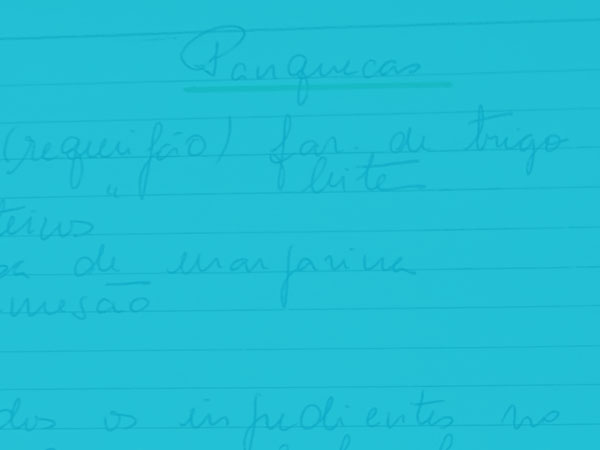 Panquecas
(requeijão) far. de trigo
" leite
teiros
de margarina
mesão
dos os ingredientes no